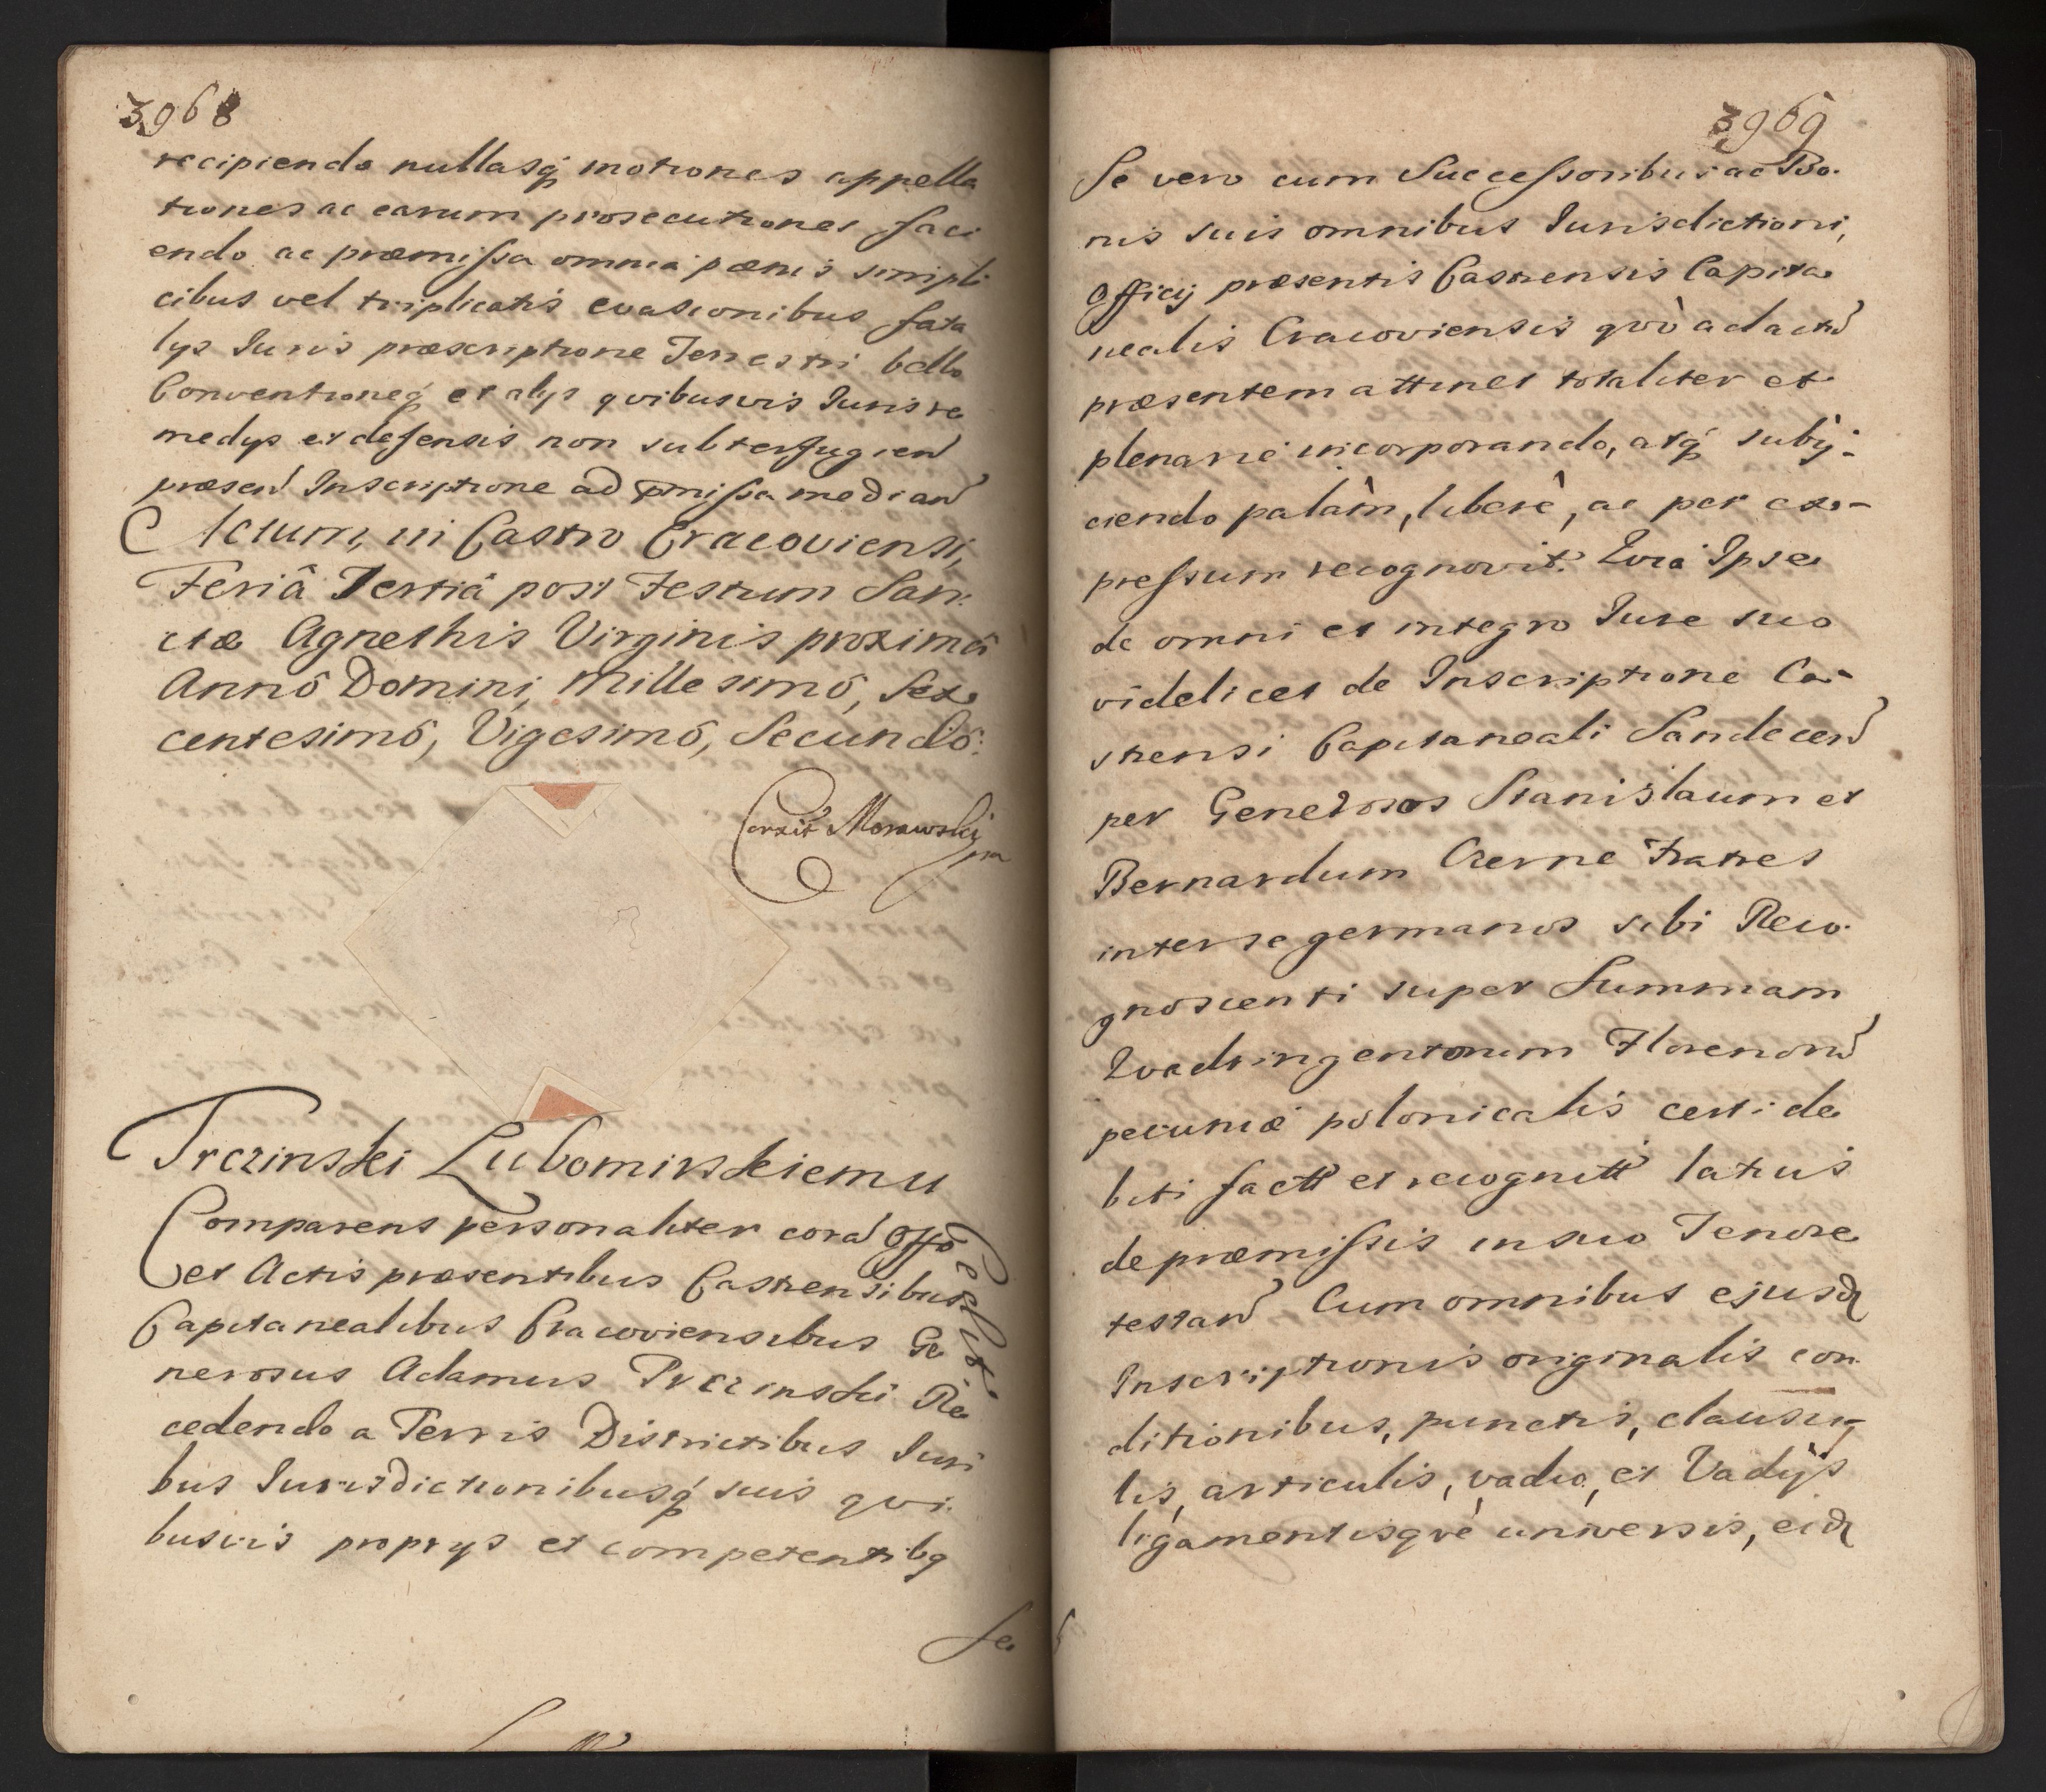 3968
recipiendo nullasq́ motiones appella
tiones ac earum prosecutiones faci
endo ac præmissa omnia pænis simpli
cibus vel triplicatis evasionibus fata
lys Juris præscriptione Terrestri bello
Conventioneq́ et alys qvibusvis Juris re
medys et defensis non subterfugien
præsen Inscriptione ad pmissa median
Actum, in Castro Cracoviensi,
Feriâ Tertiâ post Festum San
ctæ Agnethis Virginis proximâ
Annô Domini, Millesimô, Sex
centesimô, Vigesimô, Secundô:
Corxit Morawski
mp
Trczinski Lubomirskiemu
Comparens personaliter cora Offo
et Actis præsentibus Castrensibus
Capitanealibus Cracoviensibus Ge
nerosus Adamus Trczinski Re
cedendo a Terris Districtibus Juri
bus Jurisdictionibusq́ suis qvi
busvis proprys et competentibq
Se
3969
Se vero cum Successoribus ac Bo
nis suis omnibus Jurisdictioni,
Officij præsentis Castrensis Capita
nealis Cracoviensis qvò ad actu
præsentem attinet totaliter et
plenarie incorporando, atq́ subij-
ciendo palàm, liberè, ac per ex-
pressum recognovit. Qvia Ipse
de omni et integro Jure suo
videlicet de Inscriptione Ca-
strensi Capitaneali Sandecen
per Generosos Stanislaum et
Bernardum Czerne Fratres
inter se germanos sibi Reco
gnoscenti super Summam
Qvadringentorum Florenoru
pecuniæ polonicalis certi de
biti factt et recognitt latius
de præmissis in suo Tenore
testan Cum omnibus ejusd
Inscriptionis originalis con
ditionibus, punctis, clausu
lis, articulis, vadio, et Vadijs
ligamentisqvè universis, eid